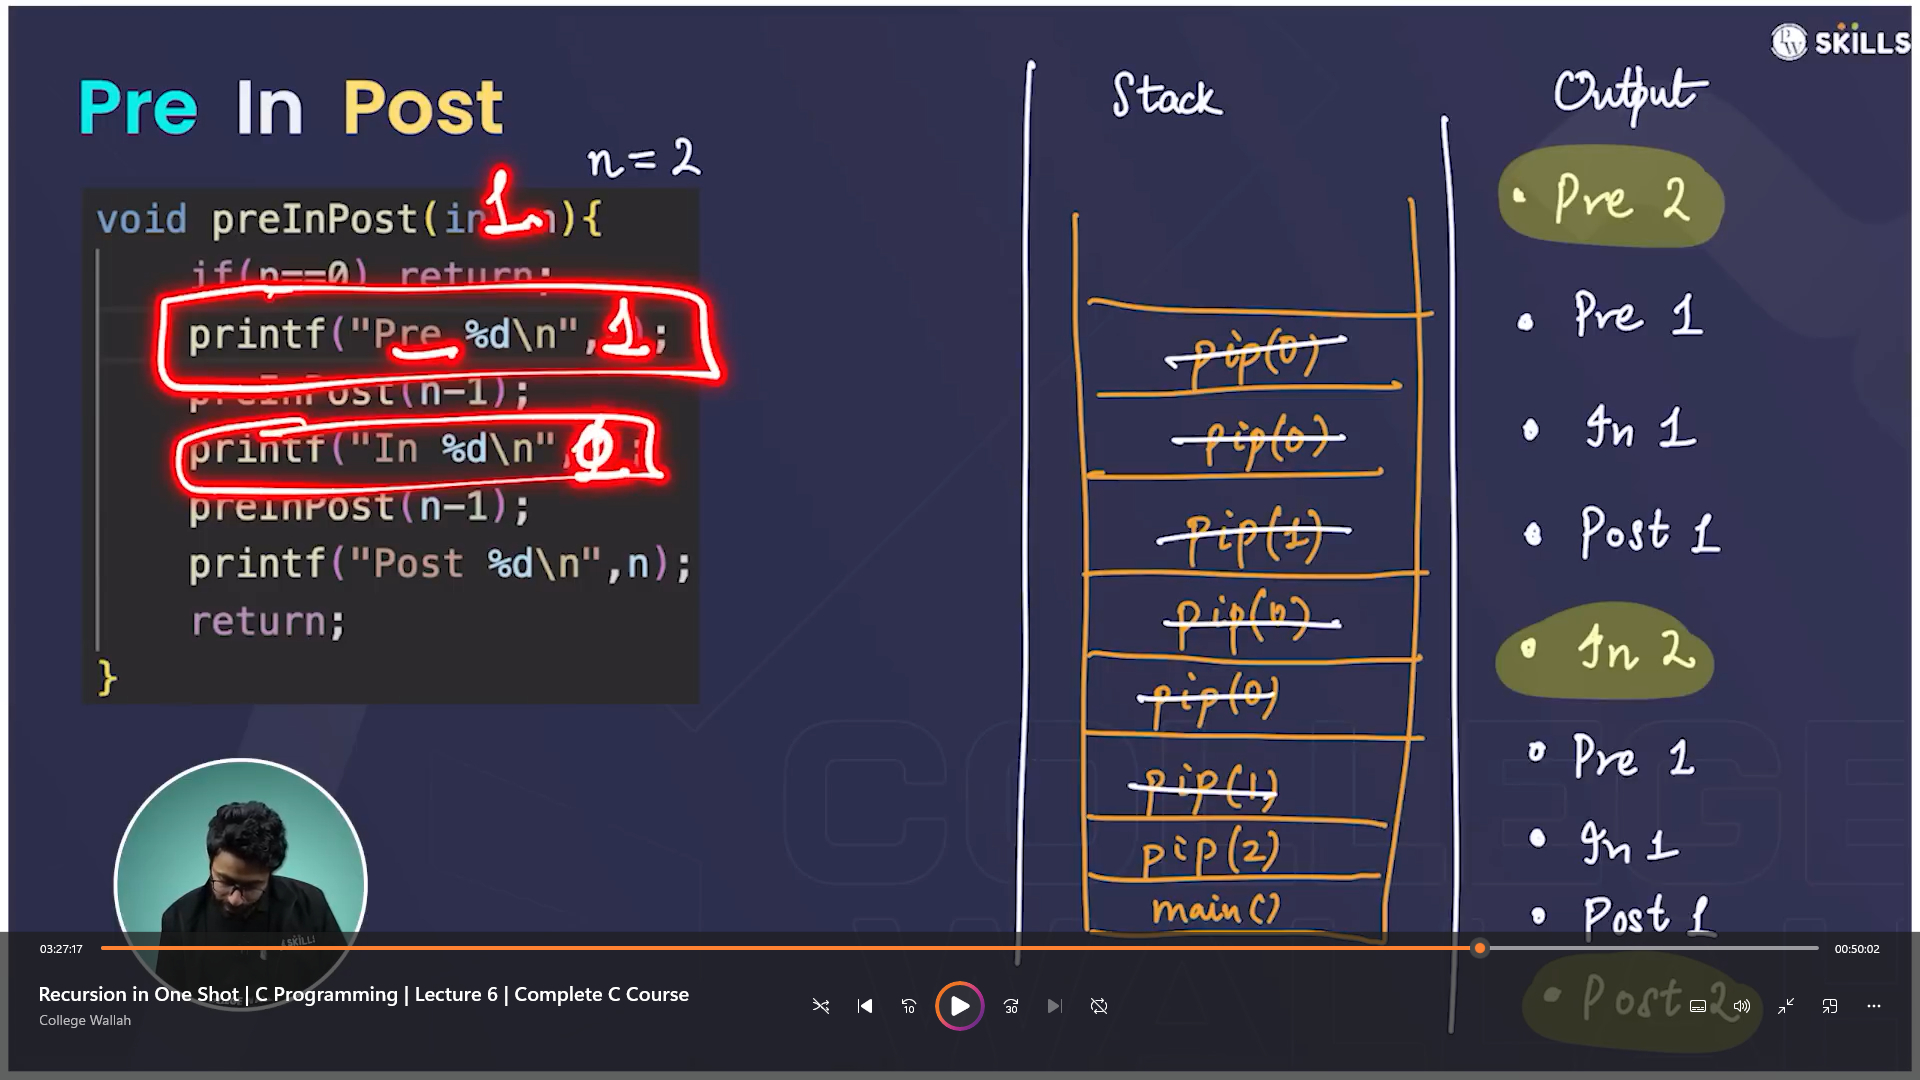 PW SKILLS
Pre In Post
n = 2
void preInPost(in 1 n){
if(n==0) return;
printf("Pre %d\n", 1);
preInPost(n-1);
printf("In %d\n",
preInPost(n-1);
printf("Post %d\n",n);
return;
}
Stack
pip(0)
pip(0)
pip(1)
pip(0)
pip(0)
pip(1)
pip(2)
main()
Output
• Pre 2
• Pre 1
• In 1
• Post 1
• In 2
• Pre 1
• In 1
• Post 1
• Post 2
COLLEGE
WALLAH
SKILLS
03:27:17
00:50:02
Recursion in One Shot | C Programming | Lecture 6 | Complete C Course
College Wallah
10
30